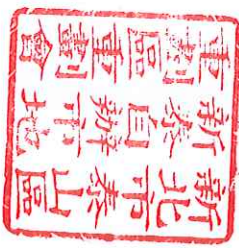 新北市泰山區
新泰自辦市地
重劃區重劃會